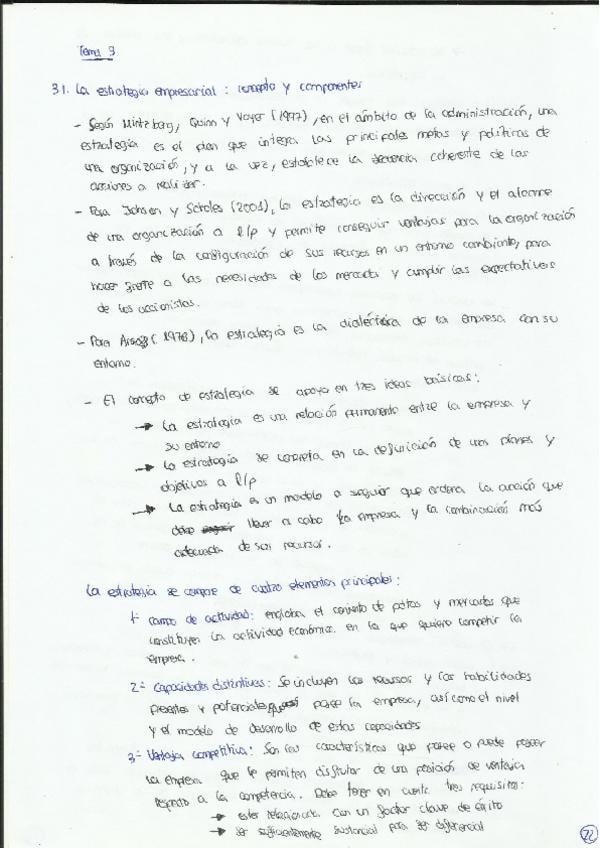 Tema 3
3.1. La estrategia empresarial: concepto y componentes
- Según Mintzberg, Quinn y Voyer (1997), en el ámbito de la administración, una
estrategia es el plan que integra las principales metas y políticas de
una organización, y a la vez, establece la secuencia coherente de las
acciones a realizar.
- Para Johnson y Scholes (2001), la estrategia es la dirección y el alcance
de una organización a l/p y permite conseguir ventajas para la organización
a través de la configuración de sus recursos en un entorno cambiante, para
hacer frente a las necesidades de los mercados y cumplir las expectativas
de los accionistas.
- Para Ansoff (1976), la estrategia es la dialéctica de la empresa con su
entorno.
- El concepto de estrategia se apoya en tres ideas básicas:
→ La estrategia es una relación permanente entre la empresa y
su entorno
→ La estrategia se concreta en la definición de unos planes y
objetivos a l/p
→ La estrategia es un modelo a seguir que ordena la acción que
debe llevar a cabo la empresa y la combinación más
adecuada de sus recursos.
La estrategia se compone de cuatro elementos principales:
1- Campo de actividad: engloba el conjunto de pdtos y mercados que
constituyen la actividad económica en la que quiere competir la
empresa.
2- Capacidades distintivas: Se incluyen los recursos y las habilidades
presentes y potenciales que posee la empresa, así como el nivel
y el modelo de desarrollo de estas capacidades
3- Ventaja competitiva: Son las características que posee o puede poseer
la empresa que le permiten disfrutar de una posición de ventaja
respecto a la competencia. Debe tener en cuenta tres requisitos:
→ estar relacionada con un factor clave de éxito
→ ser suficientemente sustancial para ser diferencial
22